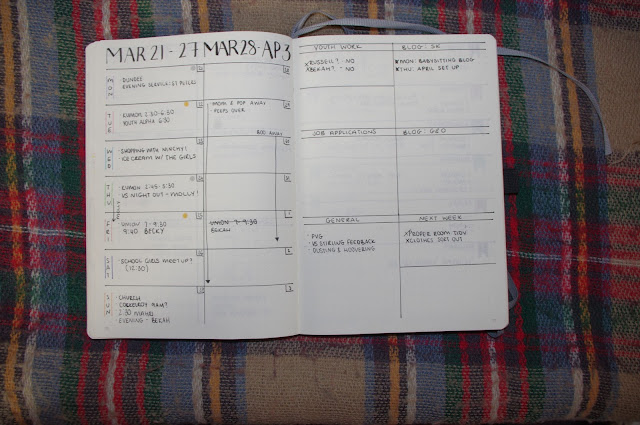 MAR 21 - 27
MAR 28 - AP 3
MON
· DUNDEE
EVENING SERVICE: ST PETERS
TUE
· KUMON 2.30-6.30
YOUTH ALPHA 6.30
MUM & POP AWAY
PEEPS OVER
WED
· SHOPPING WITH
ICE CREAM W/ THE GIRLS
ROO AWAY
THU
· KUMON
VS NIGHT OUT - MOLLY!
MOLLY
FRI
UNION 7-9.30
9:40 BECKY
UNION 7-9.30
BEKAH
1
SAT
· SCHOOL GIRLS MEETUP?
(12.30)
2
SUN
· CHURCH
· CORKEROY 9AM?
· 2.30
· EVENING - BEKAH
3
YOUTH WORK
X RUSSELL? - NO
X BEKAH? - NO
BLOG: SK
X MON: BABYSITTING BLOG
X THU: APRIL SET UP
JOB APPLICATIONS
BLOG: GEO
GENERAL
· PVG
· VS STIRLING FEEDBACK
· DUSTING & HOOVERING
NEXT WEEK
X PROPER ROOM TIDY
X CLOTHES SORT OUT